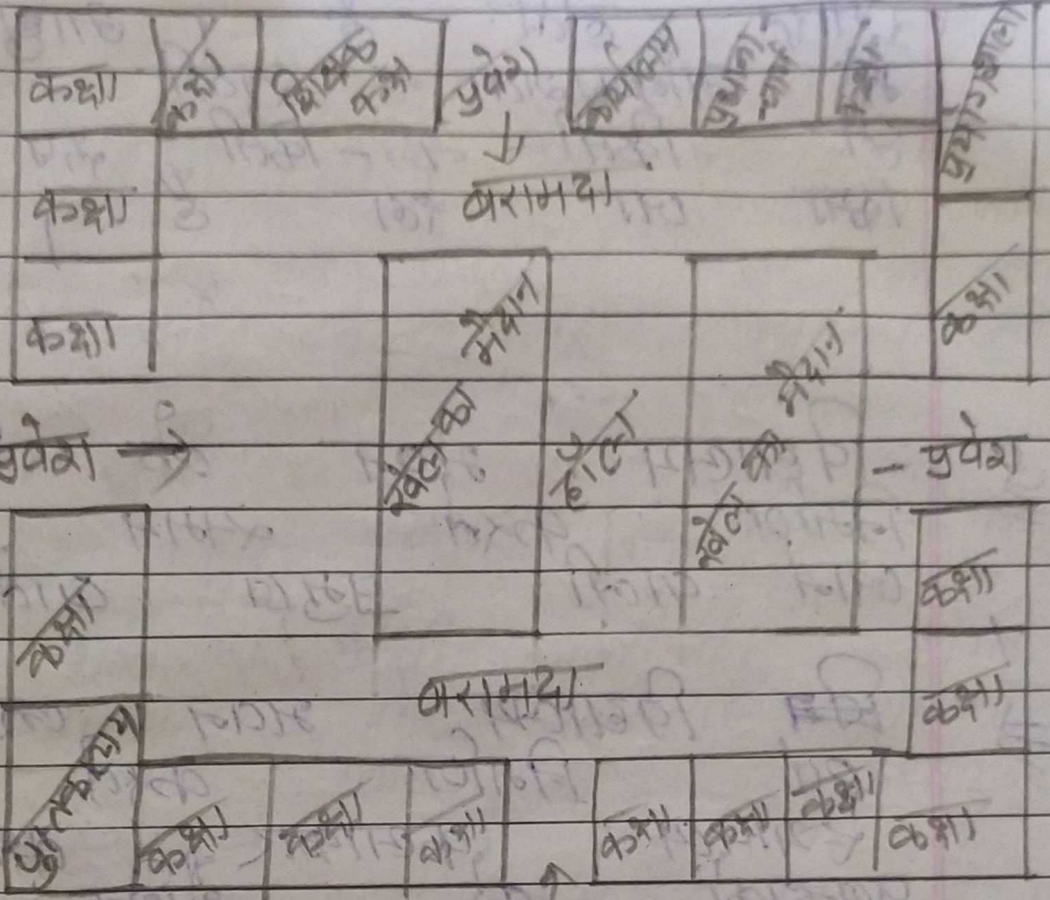 कक्षा
कक्षा
शिक्षक
कक्ष
प्रवेश
कार्यालय
प्रधाना-
चार्य
कक्षा
प्रयोगशाला
कक्षा
बरामदा
कक्षा
कक्षा
खेल का मैदान
हॉल
खेल का मैदान
प्रवेश
प्रवेश
कक्षा
कक्षा
कक्षा
बरामदा
पुस्तकालय
कक्षा
कक्षा
कक्षा
कक्षा
कक्षा
कक्षा
कक्षा